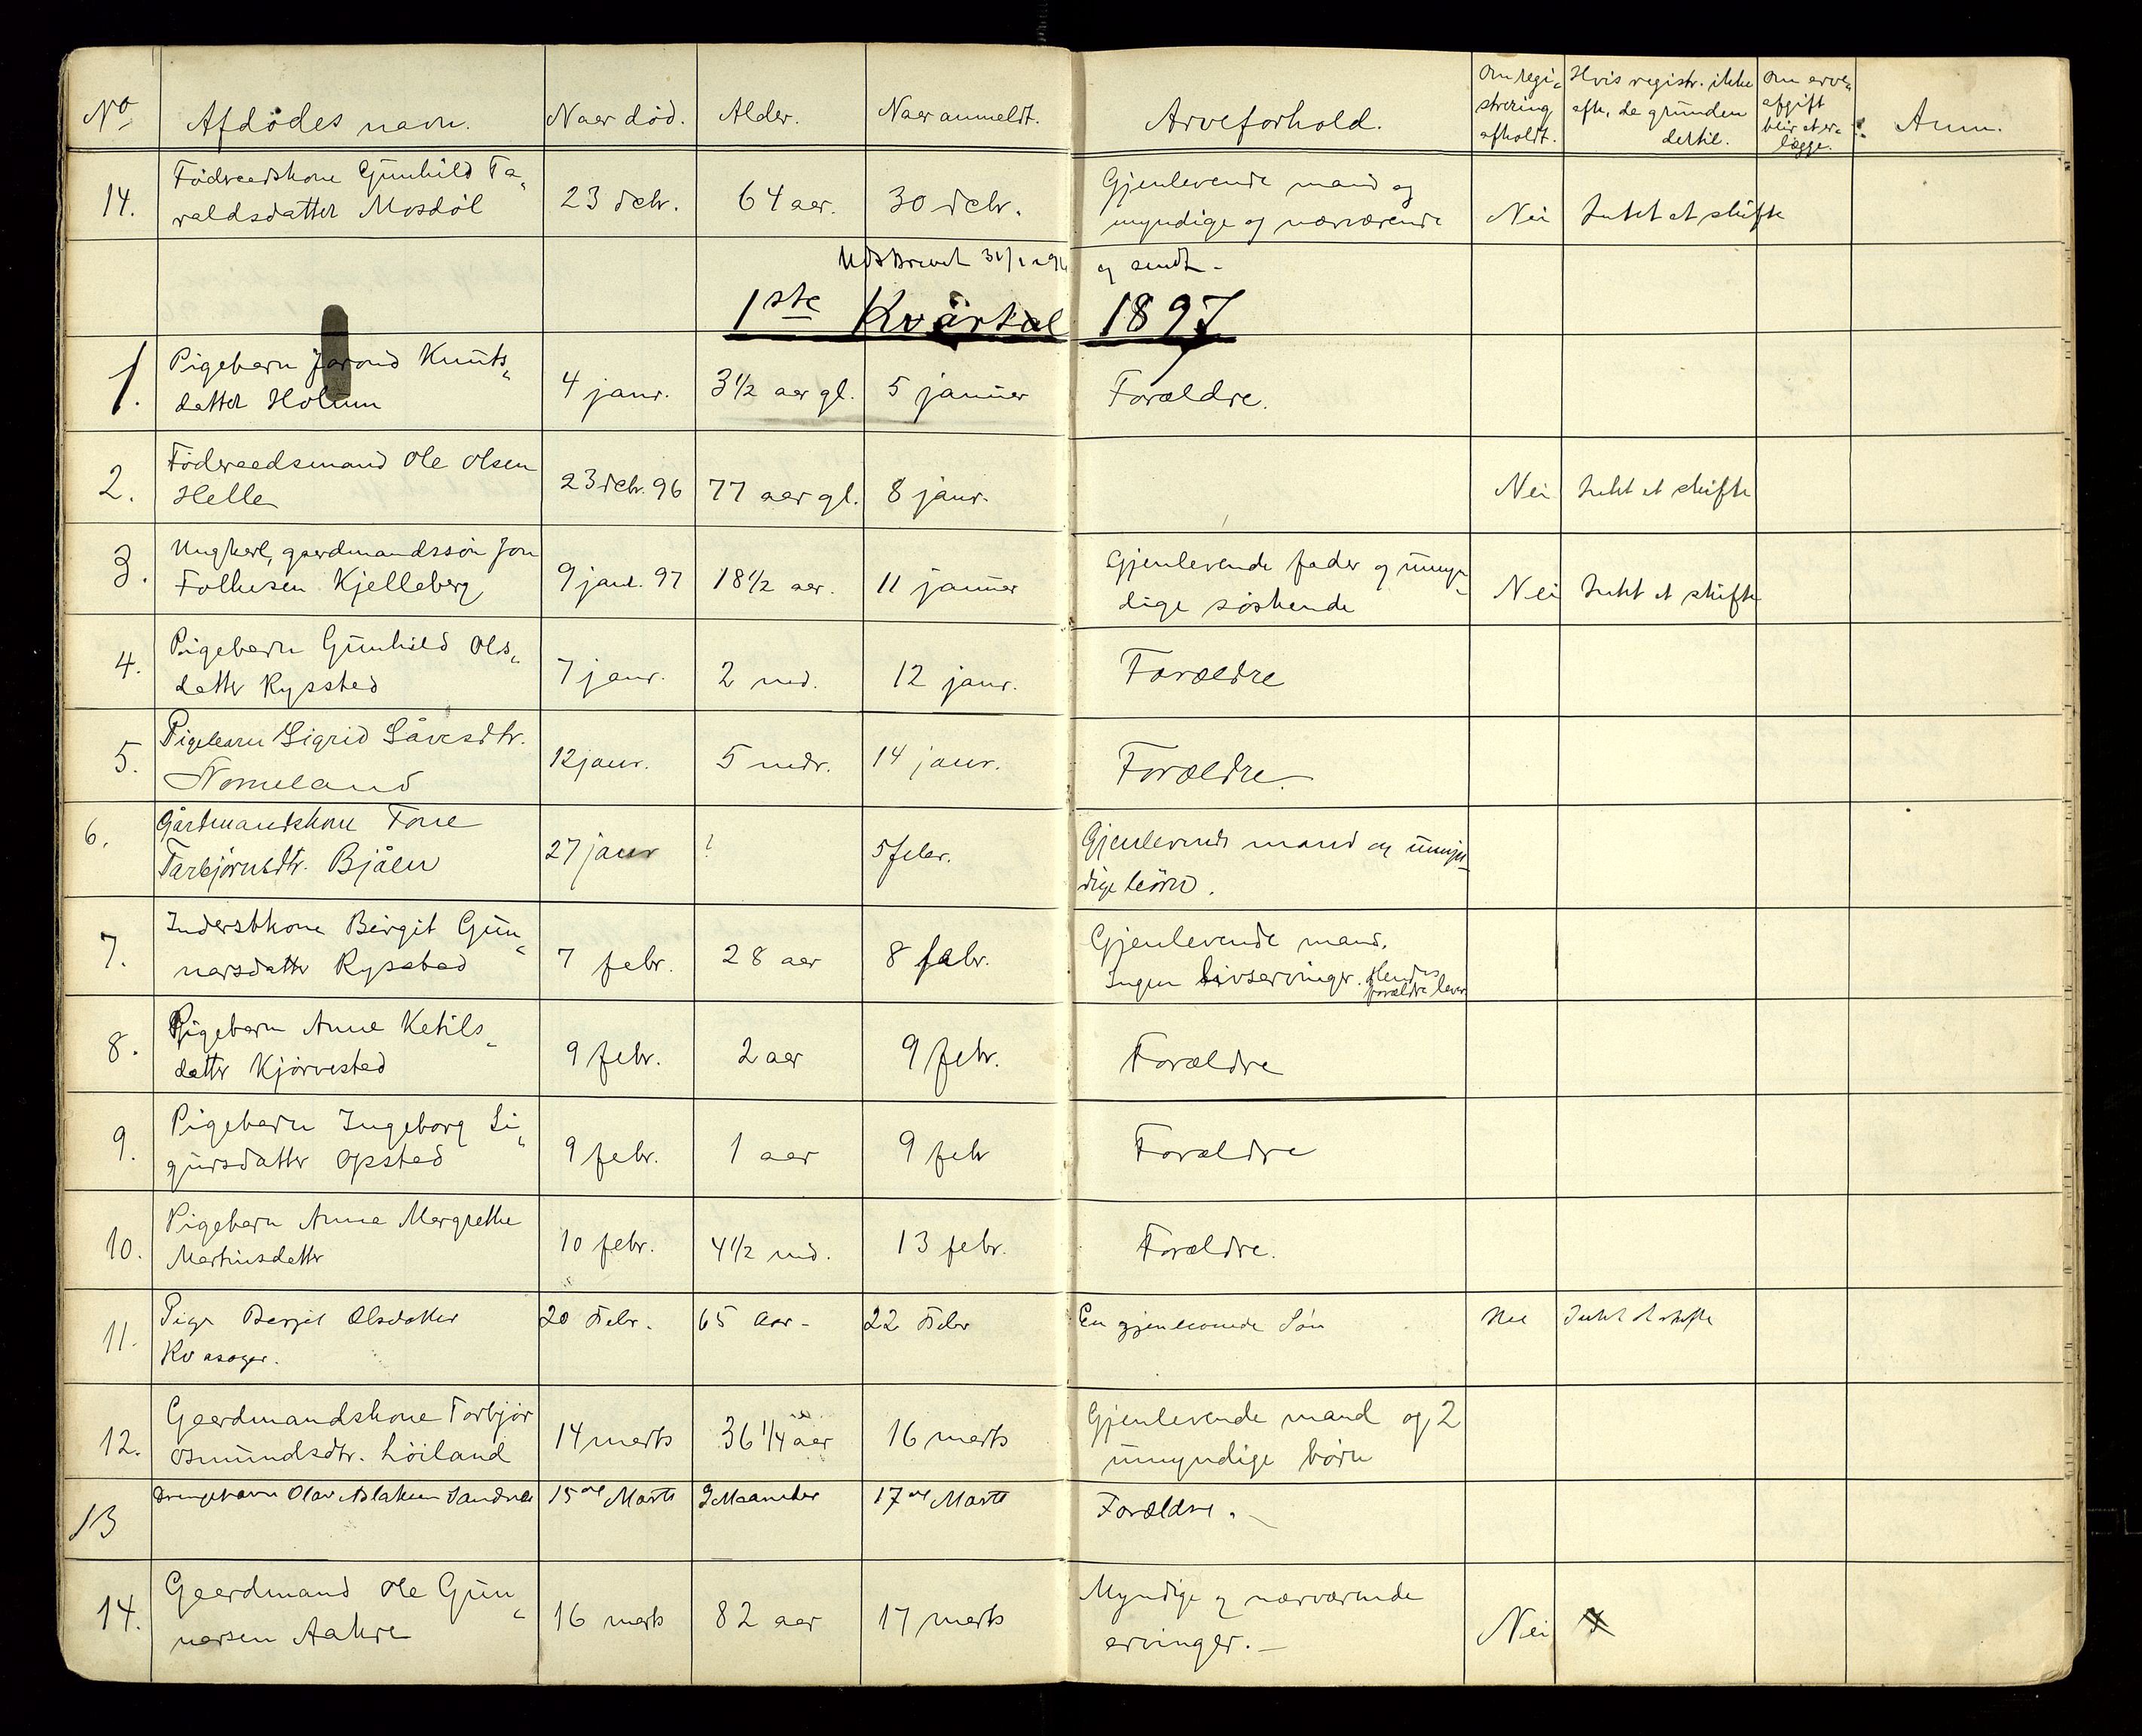 No Afdödes navn. Naar död. Alder. Naar anmeldt. Arveforhold. Om regi- Hvis registr. ikke Om arve-
strering afh., da grunden afgift
afholdt. dertil. blir at er-
lægge. Anm.
14. Föderaadskone Gunhild Ta- 23 decbr. 64 aar. 30 decbr. Gjenlevende mand og
raldsdatter Mosdöl myndige og nærværende Nei Intet at skifte
Udskrevet og sendt -
1ste Kvartal 1897
1. Pigebarn Jorond Knuts- 4 janr. 3½ aar gl. 5 januar Forældre.
datter Holum
2. Föderaadsmand Ole Olsen 23 decbr. 96 77 aar gl. 8 janr. Nei Intet at skifte
Helle
3. Ungkarl, gaardmandssön Jon 9 janr. 97 18½ aar. 11 januar Gjenlevende fader og umyn-
Folkesen Kjelleberg dige söskende Nei Intet at skifte
4. Pigebarn Gunhild Ols- 7 janr. 2 md. 12 janr. Forældre
datter Rysstad
5. Pigebarn Sigrid Såvesdtr. 12 janr. 5 mdr. 14 janr. Forældre.
Nomeland
6. Gårdmandskone Tone 27 janr ? 5 febr. Gjenlevende mand og umyn-
Tarbjörnsdtr. Bjålen dige börn.
7. Inderstkone Birgit Gun- 7 febr. 28 aar 8 febr. Gjenlevende mand.
narsdatter Rysstad Ingen livsarvinger. Hendes
forældre lever
8. Pigebarn Anne Ketils- 9 febr. 2 aar 9 febr. Forældre
datter Kjörvestad
9. Pigebarn Ingeborg Si- 9 febr. 1 aar 9 febr Forældre
gursdatter Opstad
10. Pigebarn Anna Margrethe 10 febr. 4½ md. 13 febr. Forældre.
Martinsdatter
11. Pige Bergit Olsdatter 20 Febr. 65 Aar - 22 Febr En gjenlevende Sön Nei Intet at skifte
Kvasager.
12. Gaardmandskone Torbjör 14 marts 36 1/4 aar 16 marts Gjenlevende mand og 2
Osmundsdtr. Löiland umyndige börn
13 Drengebarn Olav Aslaksen Sandnes 15de Marts 9 Maaneder 17de Marts Forældre. -
14. Gaardmand Ole Gun- 16 marts 82 aar 17 marts Myndige og nærværende
narsen Aakre arvinger. - Nei